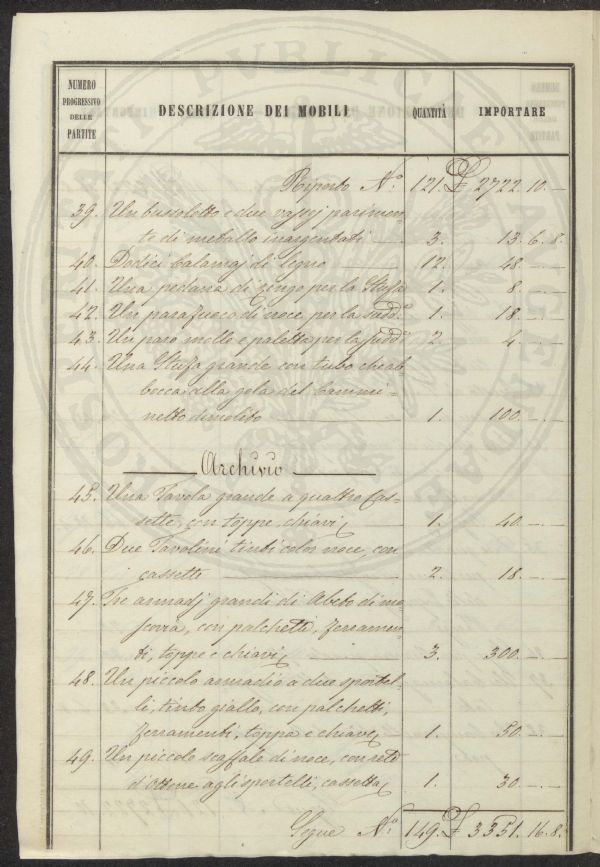 NUMERO PROGRESSIVO DELLE PARTITE DESCRIZIONE DEI MOBILI QUANTITÀ IMPORTARE
Riporto N.° 121. £ 2722. 10. —
39. Un bussolotto e due vassoj parimen-
te di metallo inargentati 3. 13. 6. 8.
40. Dodici Calamaj di legno 12. 48. — . —
41. Una pedana di zingo per la Stufa 1. 8. — . —
42. Un parafuoco di noce per la sudd.a 1. 18. — . —
43. Un paro molle e paletta per la sudd.a 2. 4. — . —
44. Una Stufa grande con tubo che ab
bocca alla gola del Cammi-
netto demolito 1. 100. — . —
Archivio
45. Una Tavola grande a quattro Cas-
sette, con toppe, chiavi 1. 40. — . —
46. Due Tavolini tinti color noce, con
cassetti 2. 18. — . —
47. Tre armadj grandi di Abeto di mo
scovia, con palchetti, ferramen-
ti, toppe e chiavi 3. 300. — . —
48. Un piccolo armadio a due sportel-
li, tinto giallo, con palchetti,
ferramenti, toppa e chiave 1. 50. — . —
49. Un piccolo scaffale di noce, con rete
d'ottone agli sportelli, cassetta 1. 30. — . —
Segue N.° 149. £ 3351. 16. 8.